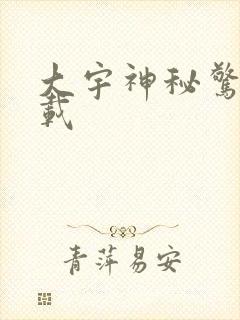 大宇神秘驚
載
青萍易安